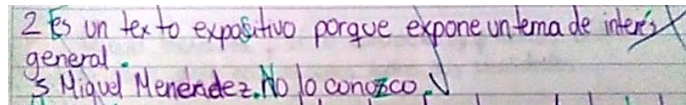 2 Es un texto expositivo porque expone un tema de interés
general.
3 Miguel Menendez. No lo conozco.